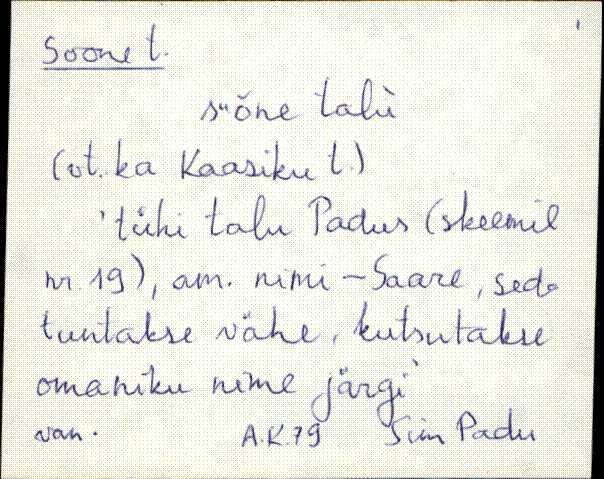 Soone t.
sṷõne talu
(vt. ka Kaasiku t.)
'tühi talu Padus (skeemil
nr. 19), am. nimi - Saare, seda
tuntakse vähe, kutsutakse
omaniku nime järgi'
van. A.K. 79 Sim Padu